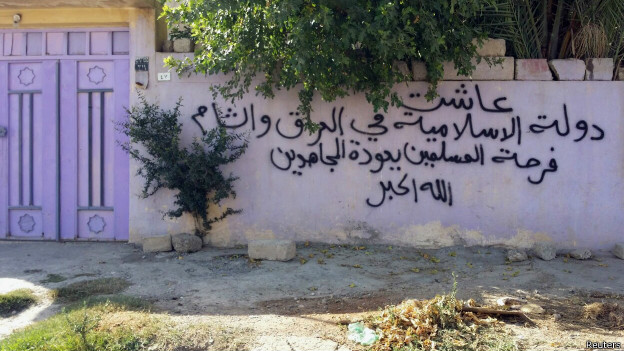 عاشت
دولة الاسلامية في العرق والشام
فرحة المسلمين بعودة المجاهدين
الله اكبر
٤٧
Reuters